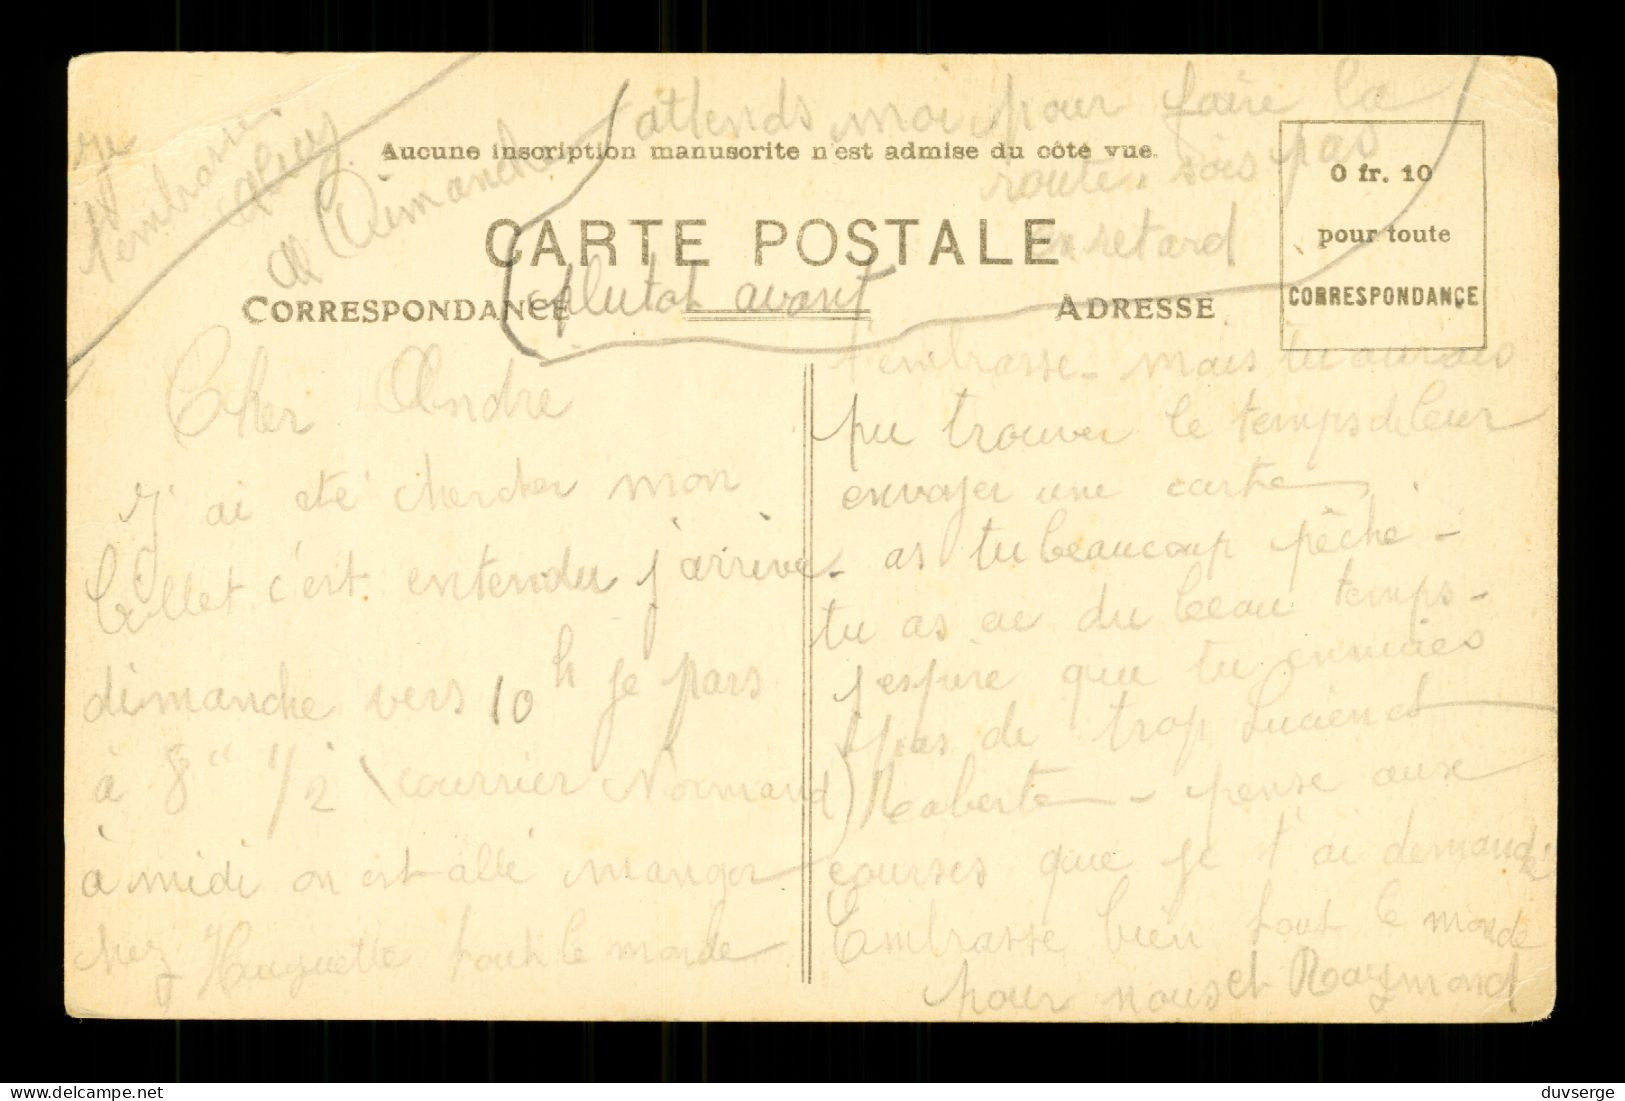 attends moi pour faire la
route. sois pas
en retard
plutot avant
Je
t'embrasse
à Dimanche
Aucune inscription manuscrite n'est admise du côté vue.
CARTE POSTALE
CORRESPONDANCE
ADRESSE
0 fr. 10
pour toute
CORRESPONDANCE
Cher André
J'ai eté chercher mon
billet c'est entendu j'arrive
dimanche vers 10h je pars
à 8" 1/2 (courrier Normand)
à midi on est allé manger
chez Huguette tout le monde
t'embrasse - mais tu aurais
pu trouver le temps de leur
envoyer une carte
- as tu beaucoup pêché -
tu as eu du beau temps -
j'espère que tu ennuies
pas de trop Lucien et
Roberte - pense aux
courses que je t'ai demandé
Embrasse bien tout le monde
pour nous et Raymond
delcampe.net
duvserge